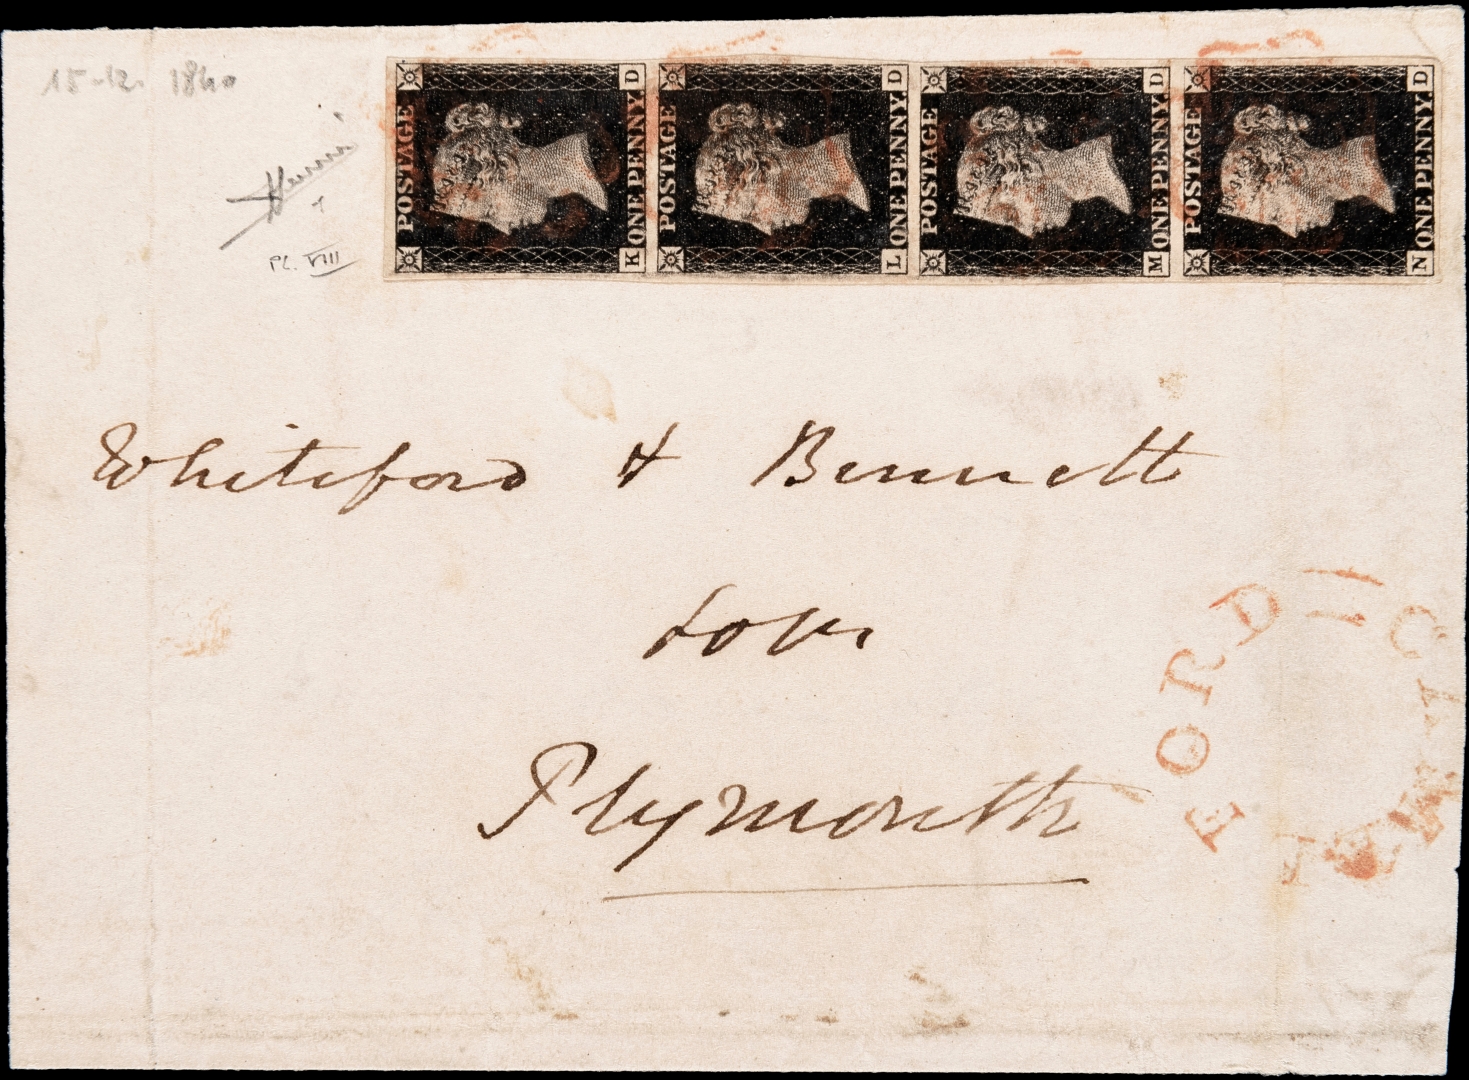 15-12. 1840
PL. VIII
POSTAGE
ONE PENNY
D K
POSTAGE
ONE PENNY
D L
POSTAGE
ONE PENNY
D M
POSTAGE
ONE PENNY
D N
Whiteford & Bennett
Plymouth
FORD